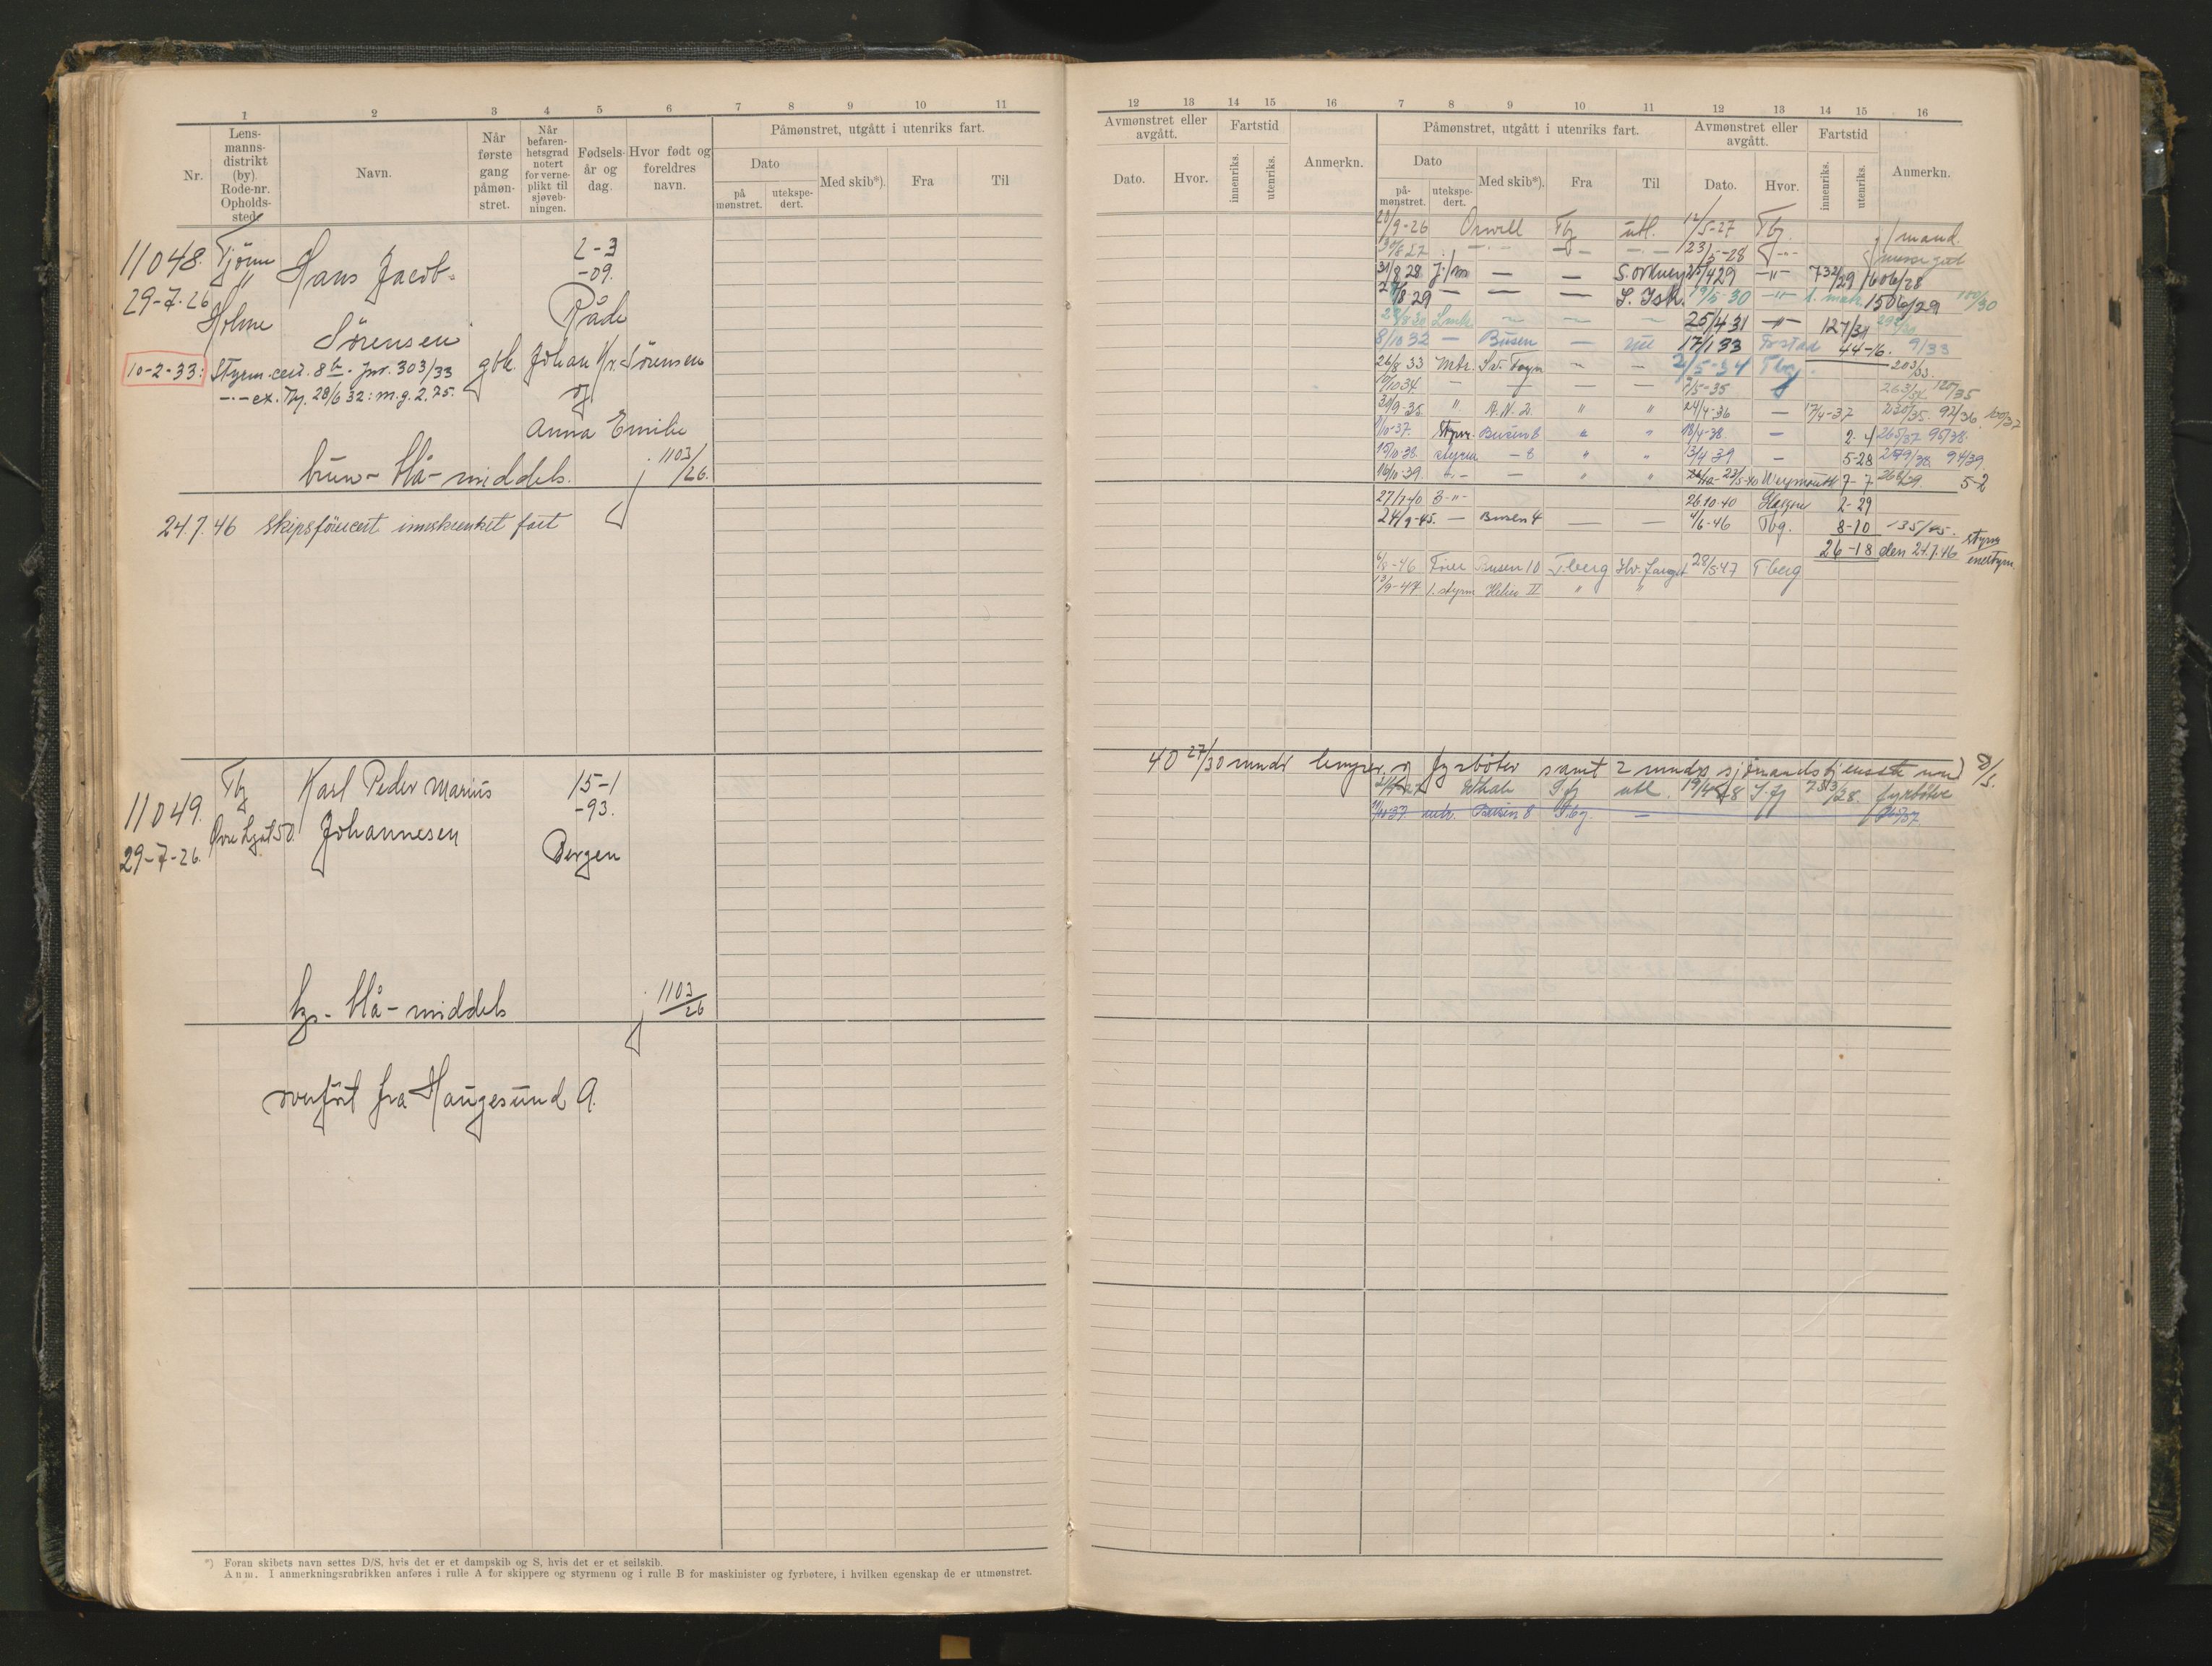 1 2 3 4 5 6 7 8 9 10 11
Nr.
Lens-
manns-
distrikt
(by).
Rode-nr.
Opholds-
sted.
Navn.
Når
første
gang
påmøn-
stret.
Når
befaren-
hetsgrad
notert
for verne-
plikt til
sjøveb-
ningen.
Fødsels-
år og
dag.
Hvor født og
foreldres
navn.
Påmønstret, utgått i utenriks fart.
Dato
på
mønstret.
utekspe-
dert.
Med skib*).
Fra
Til
11048.
29-7-26
Tjøme
"
Holme
Hans Jacob-
Sørensen
2-3
-09.
Råde
10-2-33: Styrm.cert. 8 Jnr. 303/33
gbk. Johan Kr. Sørensen
-"- ex. Tbg. 28/6 32: m.g. 2.75.
og
Anna Emilie
brun- blå- middels. j 1103/26.
24.7.46 Skipsførercert innskrenket fart
11049.
29-7-26.
Tbg
Øvre Lgat 50.
Karl Peder Marius
Johannesen
15-1
-93.
Bergen
lys- blå- middels j 1103/26
overført fra Haugesund A.
*) Foran skibets navn settes D/S, hvis det er et dampskib og S, hvis det er et seilskib.
Anm. I anmerkningsrubrikken anføres i rulle A for skippere og styrmenn og i rulle B for maskinister og fyrbøtere, i hvilken egenskap de er utmønstret.
12 13 14 15 16 7 8 9 10 11 12 13 14 15 16
Avmønstret eller
avgått.
Dato.
Hvor.
Fartstid
innenriks.
utenriks.
Anmerkn.
Påmønstret, utgått i utenriks fart.
Dato
på-
mønstret.
utekspe-
dert.
Med skib*).
Fra
Til
Avmønstret eller
avgått.
Dato.
Hvor.
Fartstid
innenriks.
utenriks.
Anmerkn.
20/9-26 Orwell Tbg utl. 12/5-27 Tbg. j/mand.
30/8 27 -"- - -"- 23/5-28 -"-
31/8 28 j/m — — S. Orkney 25/4 29 -"- 732/29 1606/28
2/8 29 — — — S. Isk. 19/5-30 -"- 1506/29 100/30
— 25/4 31 -"- 127/31
8/10 32 — Busen — utl 17/1 33 44-16. 9/33
26/8 33 Mtr. Sv. Foyn — — 2/5-34 Tbg. 203/33.
10/10 34 — — — — 7/5-35 263/34 120/35
30/9-35 " A.N. 2. " " 24/4-36 — 17/4-37 230/35. 92/36. 100/37
1/10-37. Styrm. Busen 8 " " 18/4-38. — 2-4 265/37 95/38.
15/10-38. styrm — 8 " " 13/4-39 — 5-28 279/38 94/39.
16/10-39. -"- — " " 23/5-40 Weymouth 7-7 268/39. 5-2
27/7-40 3 -"- 26.10.40 Glasgow 2-29
24/9-45. — Busen 4 — — 4/6-46 Tbg. 8-10 135/45.
26-18 den 24.7.46 styrm
enestyrm.
6/8-46 Fører Busen 10 T.berg Hv. fangst 28/5 47 Tberg
13/9-47 1. styrm Helier II " "
40 27/30 mndr lemper og fyrbøter samt 2 mndr
Whale S.fj utl. 19/4-28 S.fj fyrbøter
11/10-37 mtr. Busen 8 Tbg. — 265/37.